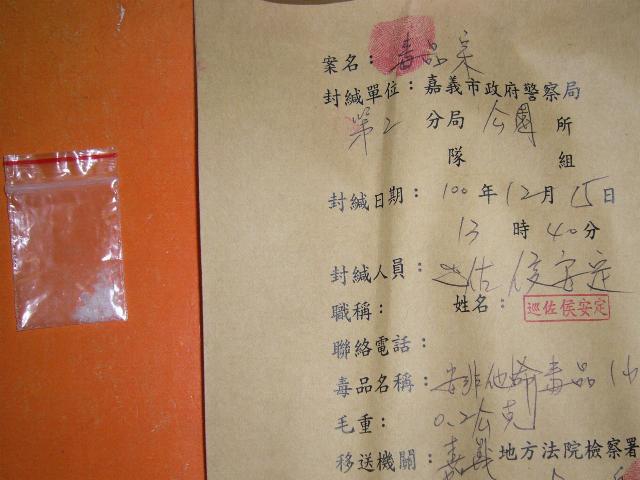 案名：毒品案
封緘單位：嘉義市政府警察局
第2 分局 公園 所
隊 組
封緘日期：100年12月15日
13時40分
封緘人員：巡佐 侯安定
職稱： 姓名：巡佐侯安定
聯絡電話：
毒品名稱：安非他命毒品1小
毛重：0.2公克
移送機關：嘉義地方法院檢察署